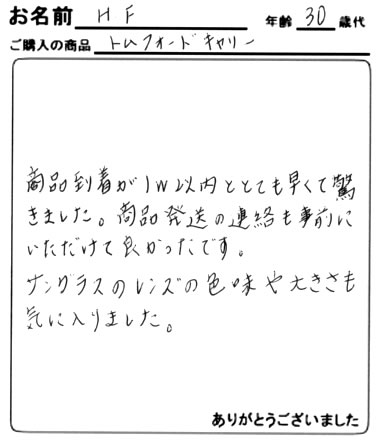 お名前 H F 年齢 30 歳代
ご購入の商品 トムフォードキャリー
商品到着が1W以内ととても早くて驚
きました。商品発送の連絡も事前に
いただけて良かったです。
サングラスのレンズの色味や大きさも
気に入りました。
ありがとうございました